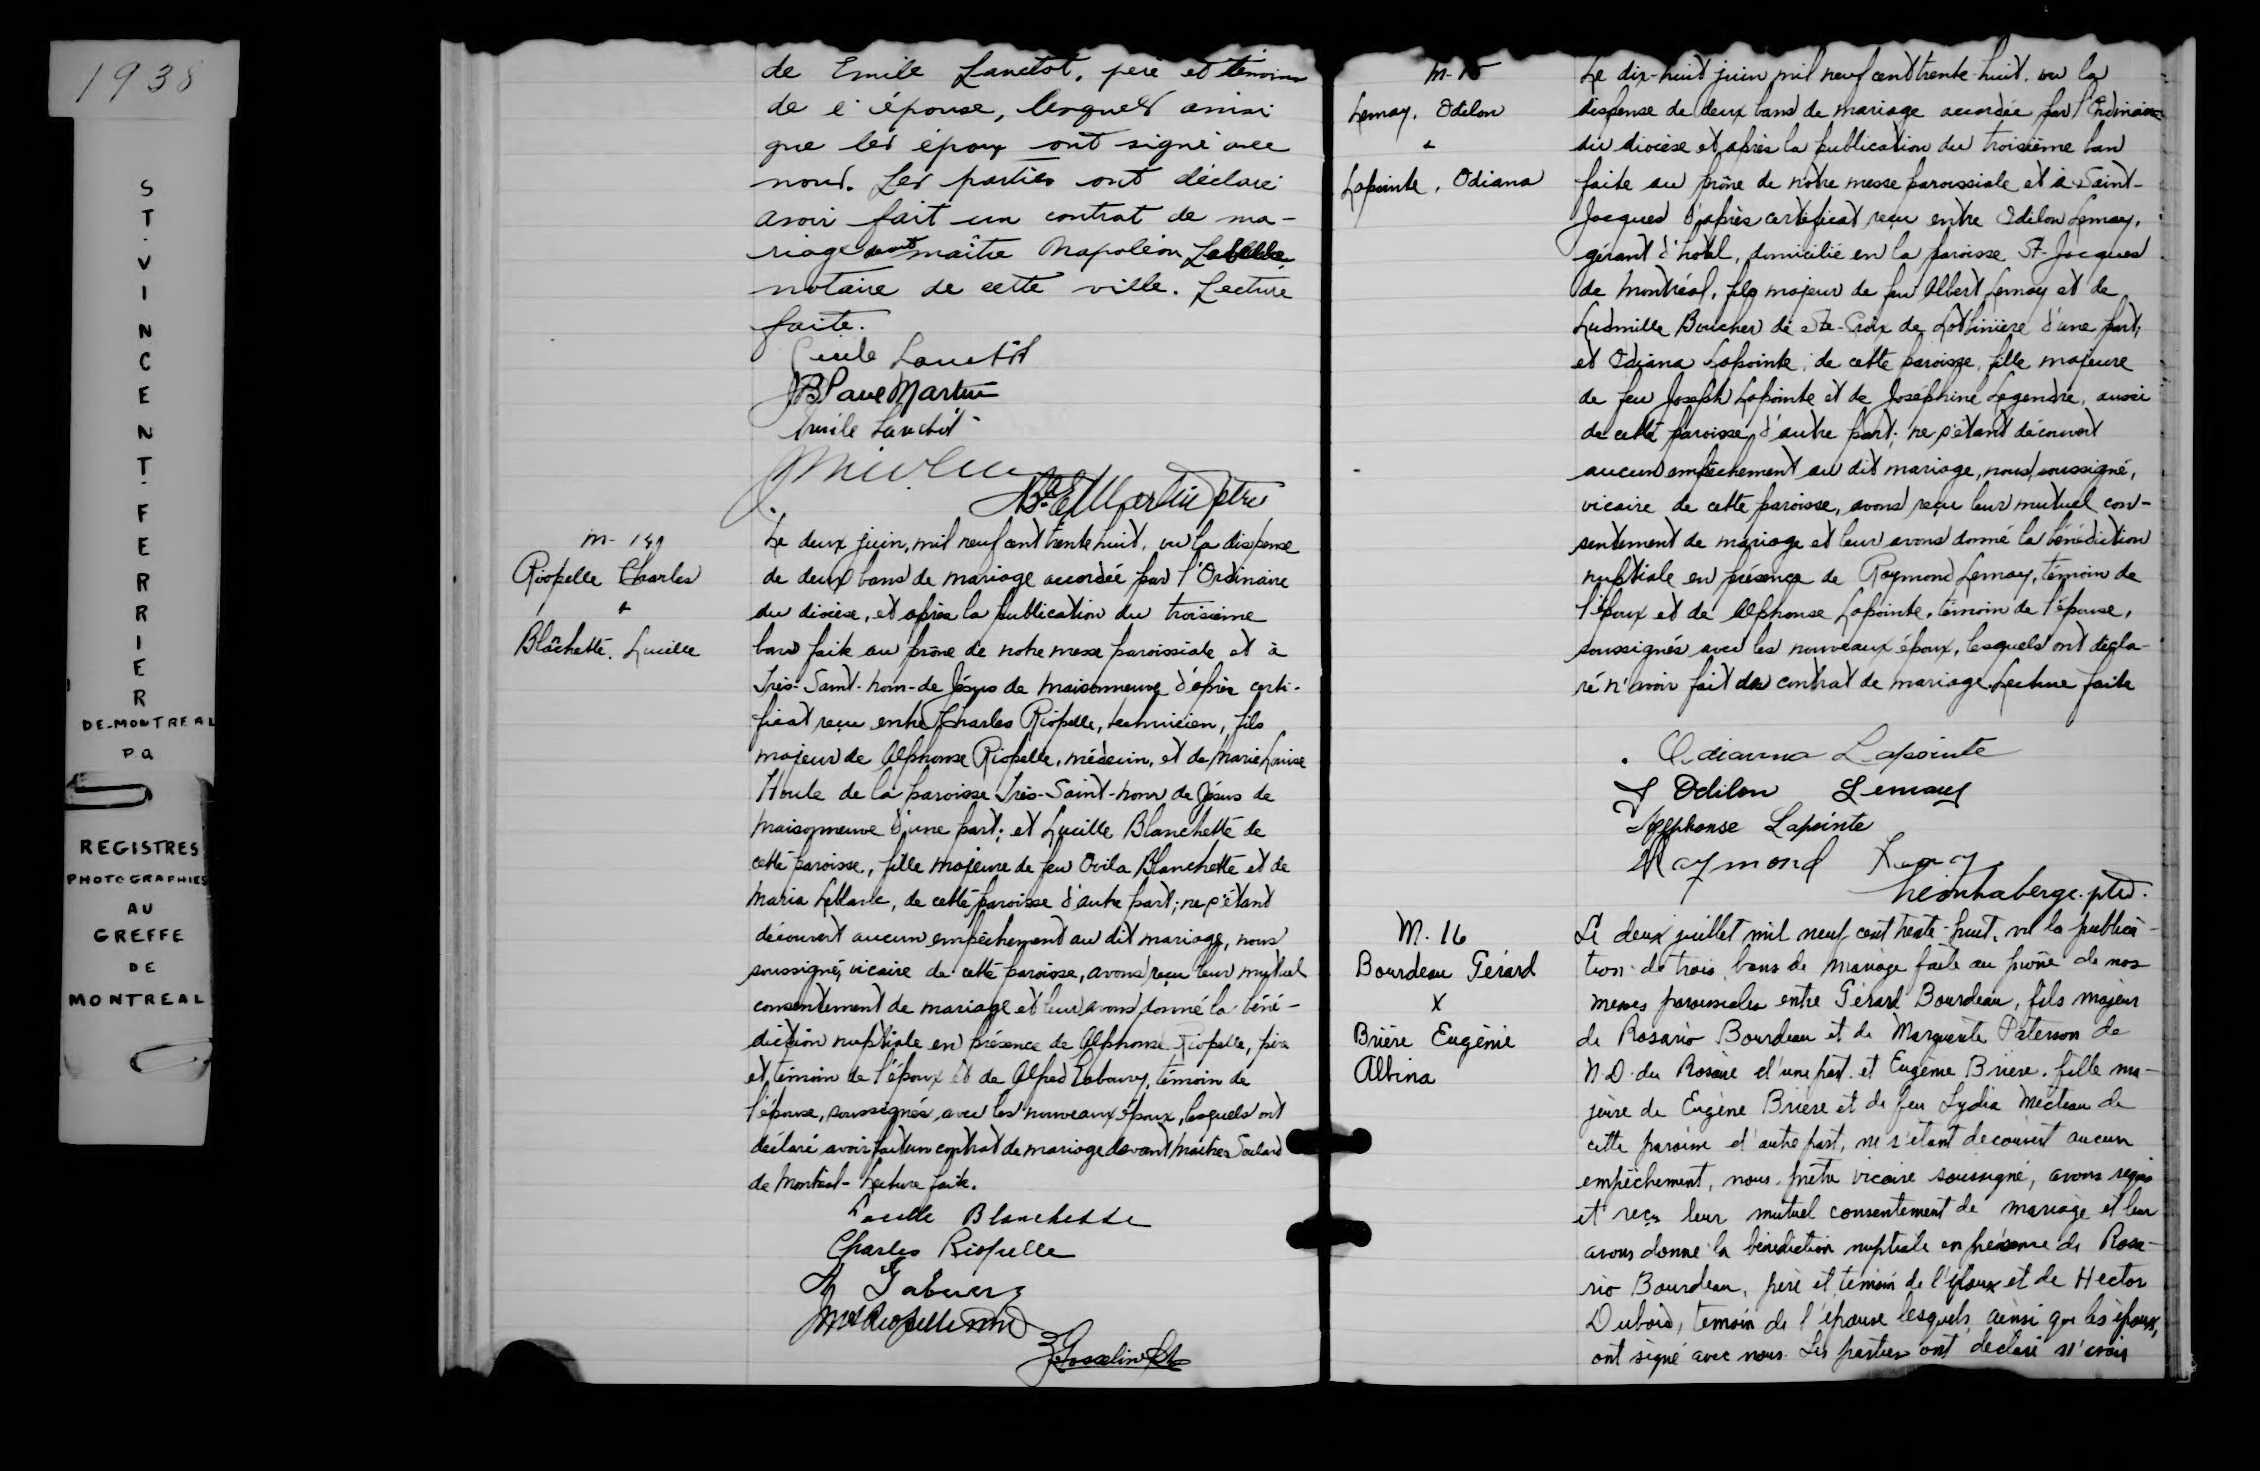 1938
ST. VINCENT-FERRIER
DE-MONTREAL
P Q
REGISTRES
PHOTOGRAPHIES
AU
GREFFE
DE
MONTREAL
de Emile Lanctot, père et témoin
de l'épouse, lesquels ainsi
que les époux ont signé avec
nous. Les parties ont déclaré
avoir fait un contrat de ma-
riage maître Napoléon
notaire de cette ville. Lecture
faite.
Cécile Lanctôt
JB Paul Martin
Emile Lanctôt
Martin ptre
Riopelle Charles
&
Blanchette. Lucille
Le deux juin, mil neuf cent trente huit, vu la dispense
de deux bans de mariage accordée par l'Ordinaire
du diocèse, et après la publication du troisième
ban faite au prône de notre messe paroissiale et à
Très-Saint-Nom-de Jésus de Maisonneuve d'après certi-
ficat reçu entre Charles Riopelle, technicien, fils
majeur de Alphonse Riopelle, médecin, et de Marie Louise
Houle de la paroisse Très-Saint-Nom de Jésus de
Maisonneuve d'une part; et Lucille Blanchette de
cette paroisse, fille majeure de feu Ovila Blanchette et de
Maria Leblanc, de cette paroisse d'autre part; ne s'étant
découvert aucun empêchement au dit mariage, nous
soussigné, vicaire de cette paroisse, avons reçu leur mutuel
consentement de mariage et leur avons donné la béné-
diction nuptiale en présence de Alphonse Riopelle, père
et témoin de l'époux et de Alfred témoin de
l'épouse, soussignés avec les nouveaux époux, lesquels ont
déclaré avoir fait un contrat de mariage devant Maître Soulard
de Montréal - Lecture faite.
Lucille Blanchette
Charles Riopelle
Riopelle MD
Gosselin
M-15
Lemay, Odilon
&
Lapointe, Odiana
Le dix-huit juin mil neuf cent trente-huit. vu la
dispense de deux bans de mariage accordée par l'Ordinaire
du diocèse et après la publication du troisième ban
faite au prône de notre messe paroissiale et à Saint-
Jacques d'après certificat reçu entre Odilon Lemay,
gérant d'hotel, domicilié en la paroisse St-Jacques
de Montréal, fils majeur de feu Albert Lemay et de
Ludmille Boucher de Ste-Croix de Lotbinière d'une part;
et Odiana Lapointe, de cette paroisse, fille majeure
de feu Joseph Lapointe et de Joséphine Legendre, aussi
de cette paroisse, d'autre part; ne s'étant découvert
aucun empêchement au dit mariage, nous soussigné,
vicaire de cette paroisse, avons reçu leur mutuel con-
sentement de mariage et leur avons donné la bénédiction
nuptiale en présence de Raymond Lemay, témoin de
l'époux et de Alphonse Lapointe, témoin de l'épouse,
soussignés avec les nouveaux époux, lesquels ont décla-
ré n'avoir fait de contrat de mariage. Lecture faite
Odianna Lapointe
Odilon Lemay
Alphonse Lapointe
Raymond Lemay
M. 16
Bourdeau Gérard
X
Brière Eugénie
Albina
Le deux juillet mil neuf cent trente-huit, vu la publica-
tion de trois bans de mariage faite au prône de nos
messes paroissiales entre Gérard Bourdeau, fils majeur
de Rosario Bourdeau et de Marguerite Paterson de
N.D. du Rosaire d'une part. et Eugénie Brière, fille ma-
jeure de Eugène Brière et de feu Lydia de
cette paroisse d'autre part, ne s'étant découvert aucun
empêchement, nous, prêtre vicaire soussigné, avons requis
et reçu leur mutuel consentement de mariage et leur
avons donné la bénédiction nuptiale en présence de Rosa-
rio Bourdeau, père et témoin de l'époux et de Hector
Dubois, témoin de l'épouse lesquels, ainsi que les époux,
ont signé avec nous. Les parties ont déclaré n'avoir